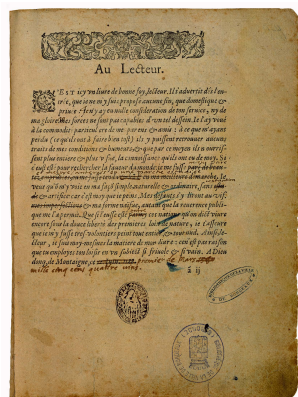 Au Lecteur.
C'EST icy vn liure de bonne foy, lecteur. Il t'aduertit dés l'en-
trée, que ie ne m'y suis proposé aucune fin, que domestique &
priuée: ie n'y ay eu nulle consideration de ton seruice, ny de
ma gloire: mes forces ne sont pas capables d'vn tel dessein. Ie l'ay voué
à la commodité particuliere de mes parens & amis: à ce que m'ayant
perdu (ce qu'ils ont à faire bien tost) ils y puissent retrouuer aucuns
traits de mes conditions & humeurs, & que par ce moyen ils nourris-
sent plus entiere & plus vifue, la connoissance qu'ils ont eu de moy. Si
c'eust esté pour rechercher la faueur du monde, ie me fusse
Ie
veus qu'on m'y voie en ma façon simple, naturelle & ordinaire, sans
& artifice: car c'est moy que ie peins. Mes defauts s'y liront au vif,
& ma forme naïfue, autant que la reuerence publique
me l'a permis. Que si i'eusse esté ces nations qu'on dict viure
encore sous la douce liberté des premieres loix de nature, ie t'asseure
que ie m'y fusse tres-volontiers peint tout entier, & tout nud. Ainsi, le-
cteur, ie suis moy-mesmes la matiere de mon liure: ce n'est pas raison
que tu employes ton loisir en vn subiect si friuole & si vain. A Dieu
donq, de Montaigne, ce premier de Mars
mille cinq cens quatre vins.
ã ij